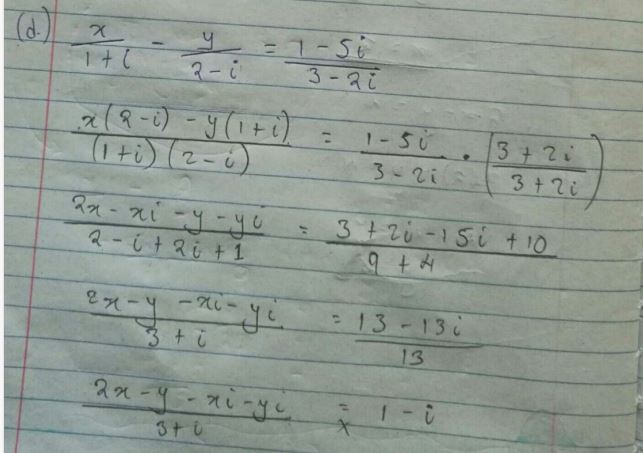 (d.) x/(1+i) - y/(2-i) = (1-5i)/(3-2i)
(x(2-i) - y(1+i))/((1+i)(2-i)) = (1-5i)/(3-2i) · ((3+2i)/(3+2i))
(2x - xi - y - yi)/(2-i+2i+1) = (3+2i-15i+10)/(9+4)
(2x-y-xi-yi)/(3+i) = (13-13i)/13
(2x-y-xi-yi)/(3+i) = 1-i